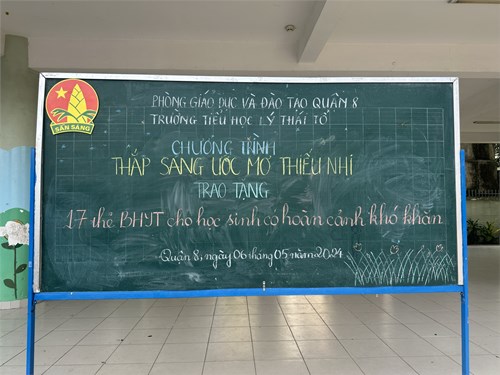 PHÒNG GIÁO DỤC VÀ ĐÀO TẠO QUẬN 8
TRƯỜNG TIỂU HỌC LÝ THÁI TỔ
SẴN SÀNG
CHƯƠNG TRÌNH
THẮP SÁNG ƯỚC MƠ THIẾU NHI
TRAO TẶNG
17 thẻ BHYT cho học sinh có hoàn cảnh khó khăn
Quận 8, ngày 06 tháng 05 năm 2024